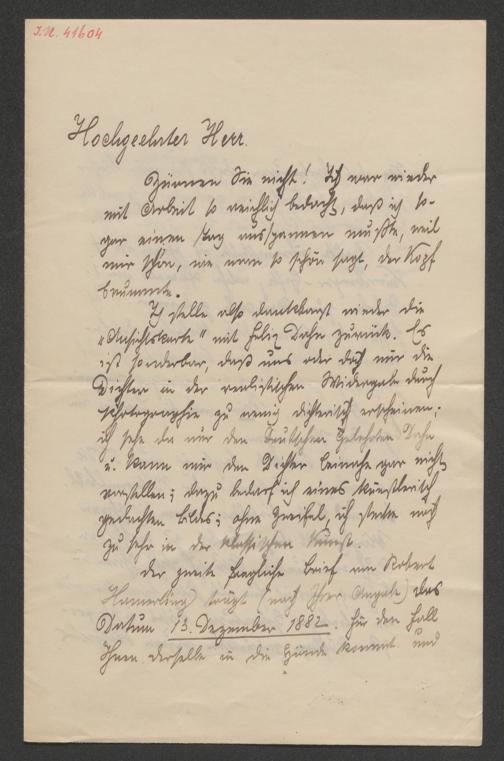 I.N. 41604
Hochgeehrter Herr.
Zürnen Sie nicht! Ich war wieder
mit Arbeit so reichlich bedacht, daß ich so-
gar einen Tag ausspannen mußte, weil
mir schon, wie man so schön sagt, der Kopf
brummte.
Ich stelle also dankbarst wieder die
„Ansichtskarte" mit Felix Dahn zurück. Es
ist sonderbar, daß uns oder doch mir die
Dichter in der realistischen Widergabe durch
Photographie zu wenig dichterisch erscheinen;
ich sehe da nur den Deutschen Gelehrten Dahn
u. kann mir den Dichter beinahe gar nicht
vorstellen; dazu bedarf ich eines künstlerisch
gedachten Bildes; ohne Zweifel, ich stecke noch
zu sehr in der klassischen Kunst.
Der zweite fragliche Brief von Robert
Hamerling trägt (nach Ihrer Angabe) das
Datum 13. Dezember 1882. Für den Fall
Ihnen derselbe in die Hände kommt und